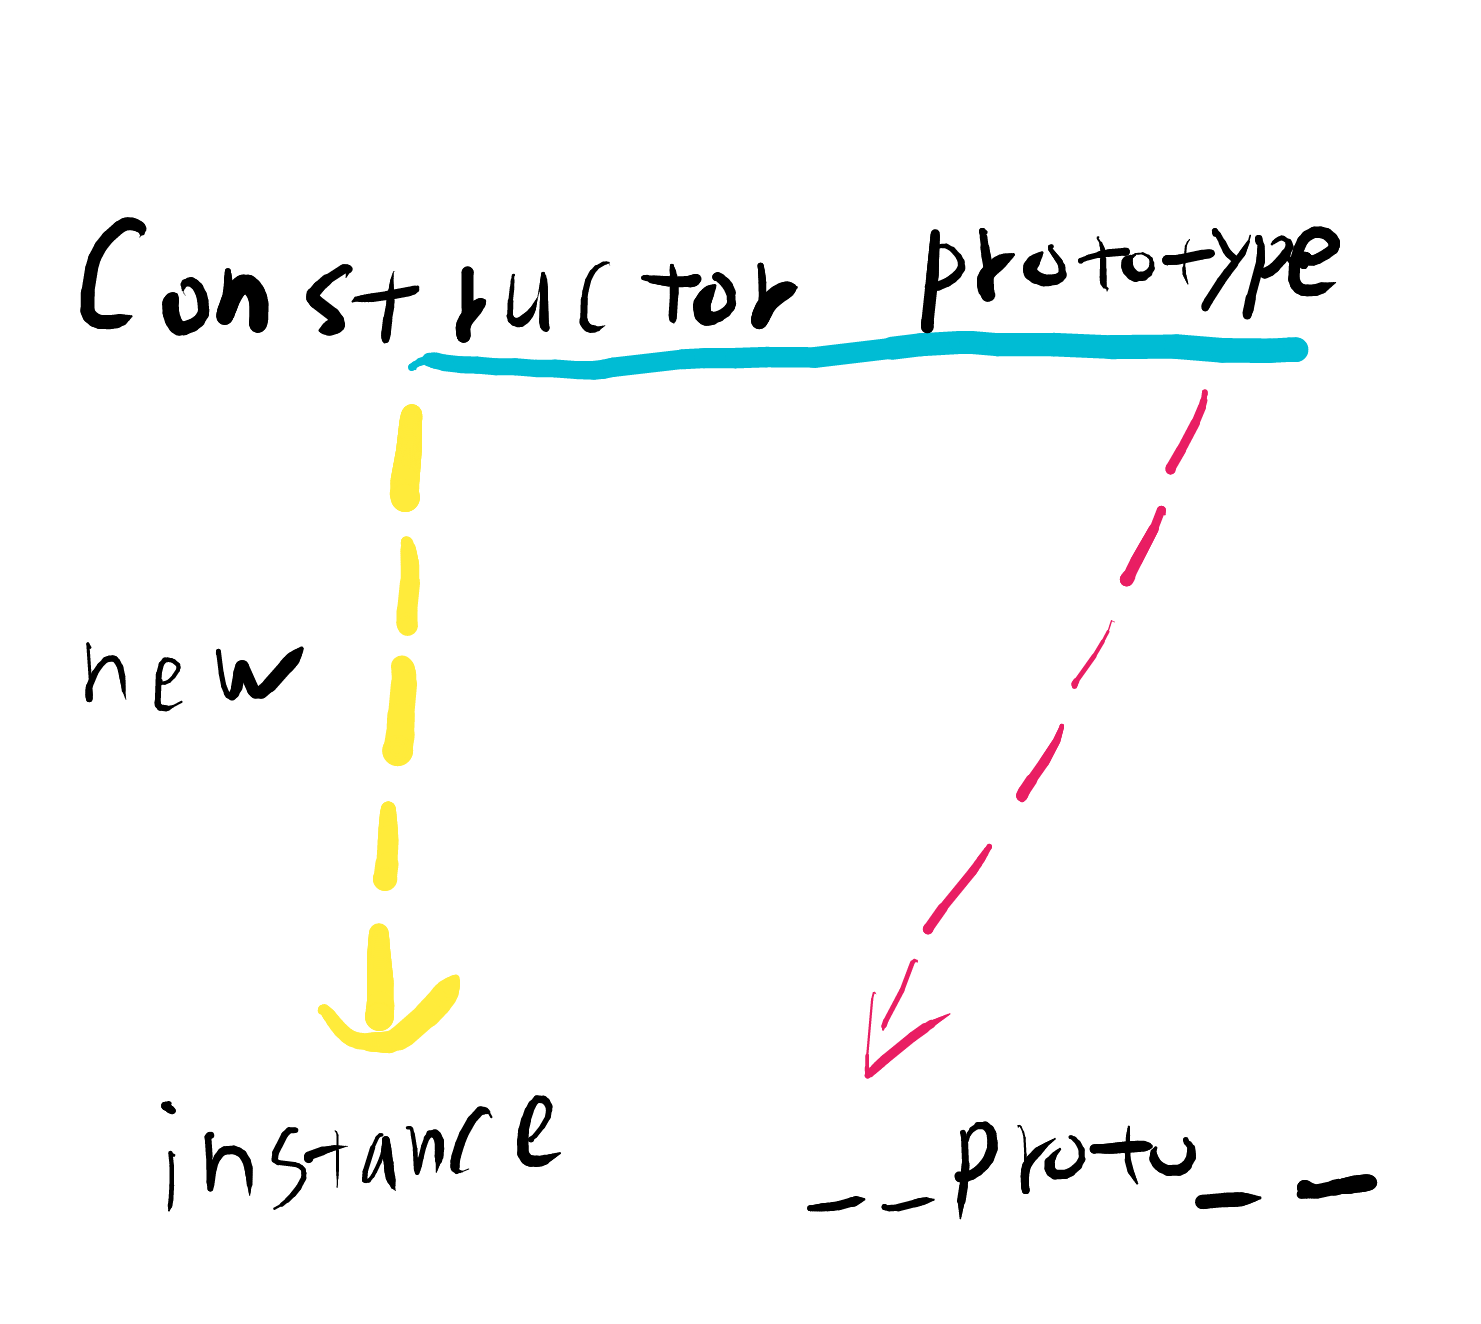 Constructor prototype
new
instance __proto__